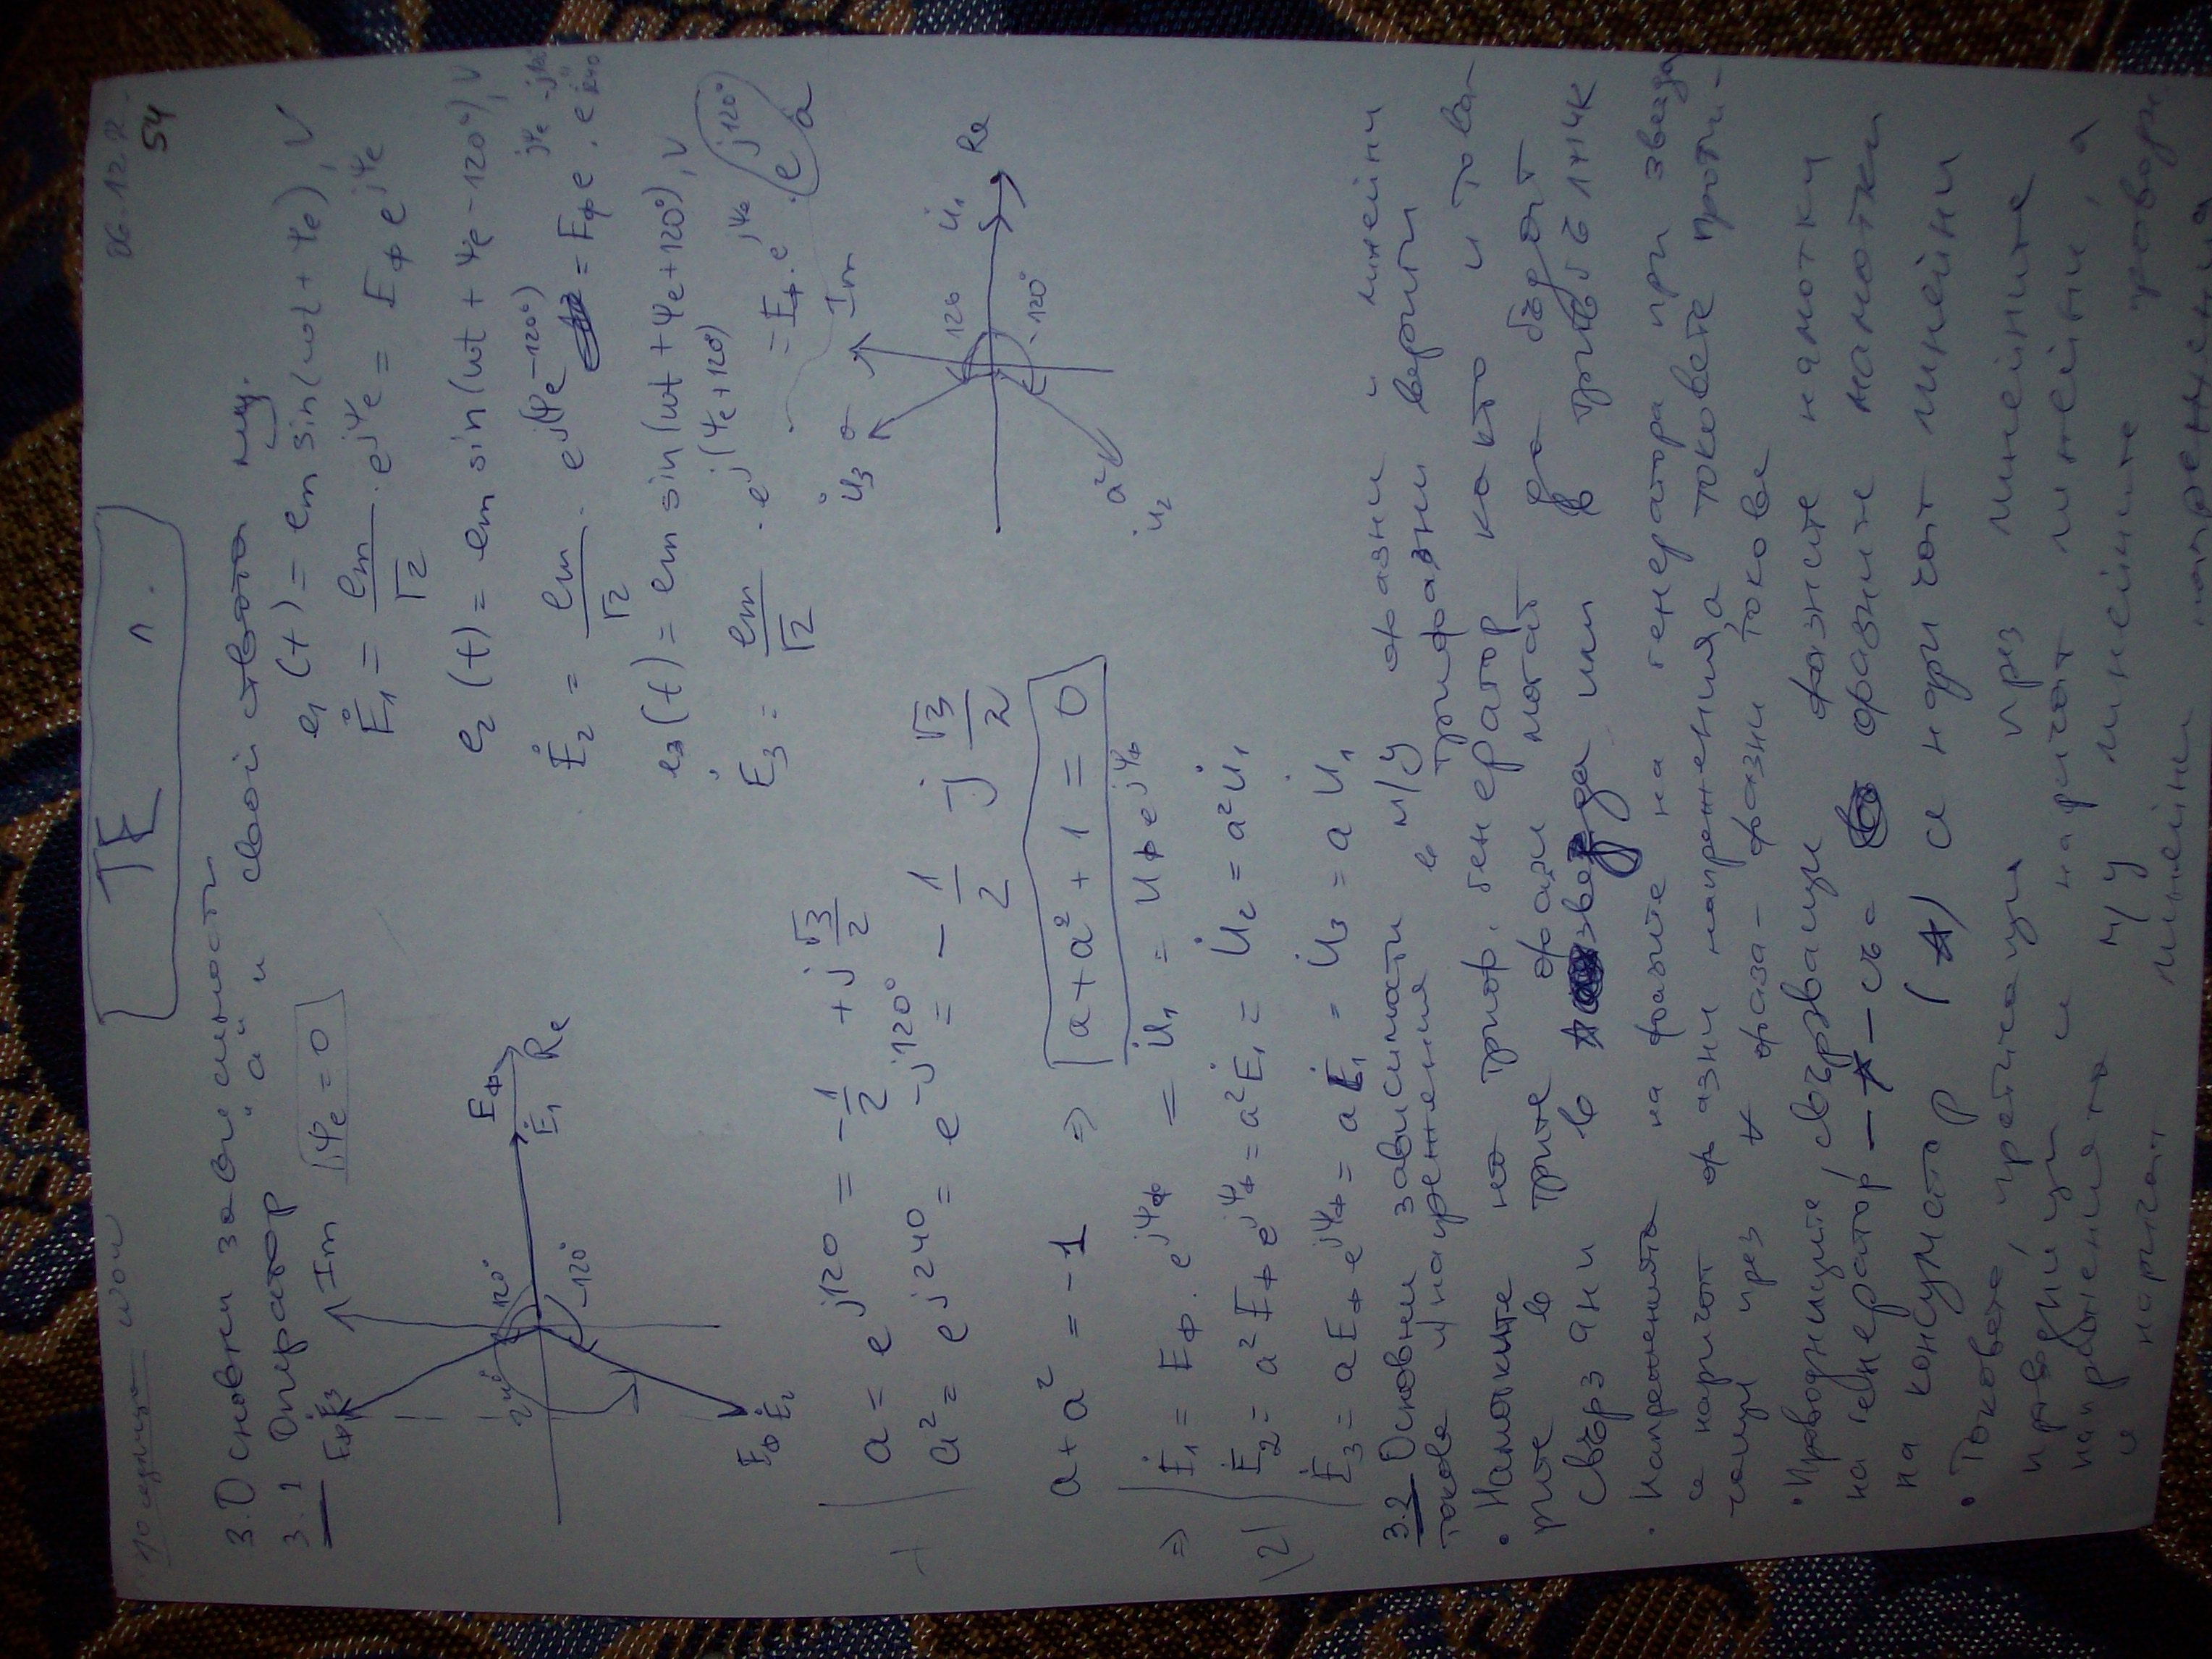 10 седмица
ТЕ л.
54
3. Основни зависимости
3.1 Оператор "а" и свойствата му.
Im
ψe = 0
Eф Ė3
120°
240°
-120°
Eф
Ė1
Re
Eф Ė2
e1(t) = em sin(ωt + ψe), V
Ė1 = em/√2 . e^jψe = Eф e^jψe
e2(t) = em sin(ωt + ψe - 120°), V
Ė2 = em/√2 . e^j(ψe-120°) = Eф e^jψe . e^-j120°
e3(t) = em sin(ωt + ψe + 120°), V
Ė3 = em/√2 . e^j(ψe+120°)
= Eф . e^jψe . e^j120°
a
a = e^j120 = -1/2 + j √3/2
a² = e^j240 = e^-j120° = -1/2 - j √3/2
a + a² = -1 ⇒ a + a² + 1 = 0
u̇3 a
Im
120
u̇1
Re
-120°
a²
u̇2
⇒ Ė1 = Eф . e^jψф = u̇1 = Uф e^jψф
Ė2 = a² Eф e^jψф = a² Ė1 = U̇2 = a² u̇1
Ė3 = a Eф e^jψф = a Ė1 = U̇3 = a U̇1
3.2 Основни зависимости м/у фазни и линейни
токове и напрежения в трифазни вериги
• Намотките на триф. генератор както и това-
рите в трите фази могат да бъдат
свързани в звезда или в триъгълник
• Напреженията на фазите на генератора при звезда
се наричат фазни напрежения, а токовете проти-
чащи през фаза - фазни токове
• Проводниците, свързващи фазните намотки
на генератор - със фазните намотки
на консуматор се наричат линейни
• Токовете, протичащи през линейните
проводници се наричат линейни, а
напреженията м/у линейните провод.
се наричат линейни напрежения